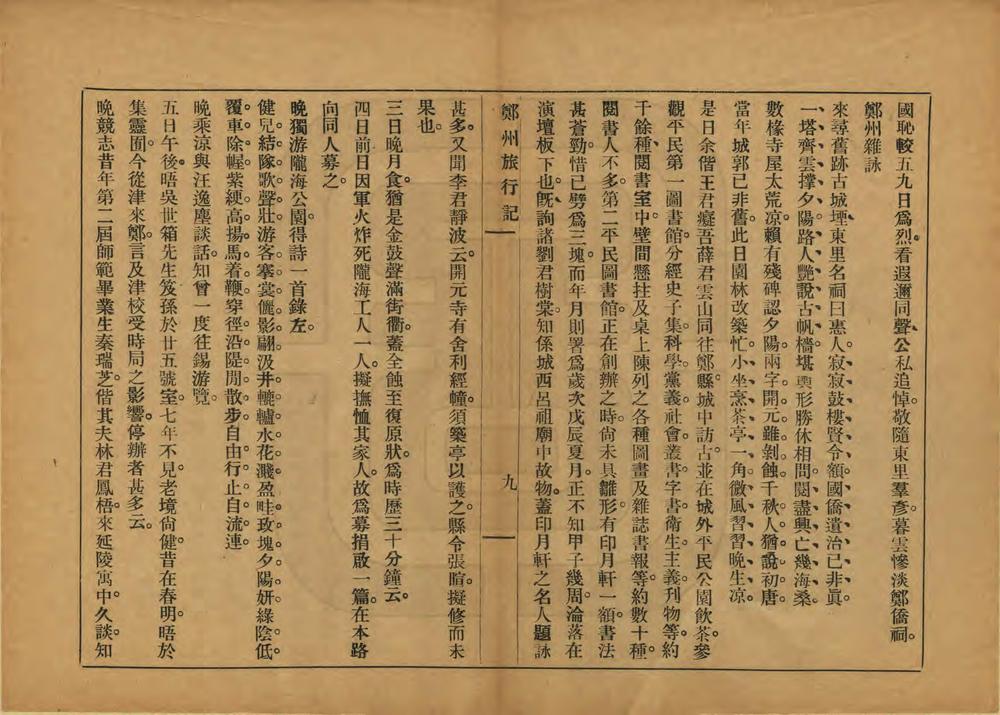 國恥較五九日爲烈看遐邇同聲公私追悼。敬隨東里羣彥。暮雲慘淡鄭僑祠。
鄭州雜詠
來尋舊跡古城堙、東里名祠曰惠人。寂寂鼓樓賢令額、國僑遺治已非眞。
一塔齊雲撑夕陽、路人艷說古帆檣。堪輿形勝休相問、閱盡興亡幾海桑。
數椽寺屋太荒凉。賴有殘碑認夕陽。兩字開元雖剝蝕。千秋人猶說初唐。
當年城郭已非舊。此日園林改築忙。小坐烹茶亭一角、微風習習晚生凉。
是日余偕王君癡吾薛君雲山同往鄭縣城中訪古。並在城外平民公園飲茶。參
觀平民第一圖書館。分經史子集科學黨義社會叢書字書衛生主義刊物等。約
千餘種。閱書室中。壁間懸挂及桌上陳列之各種圖畫及雜誌書報等。約數十種。
閱書人不多。第二平民圖書館。正在創辦之時。尙未具雛形。有印月軒一額。書法
甚蒼勁。惜已劈爲三塊。而年月則署爲歲次戊辰夏月。正不知甲子幾周。淪落在
演壇板下也。旣詢諸劉君樹棠。知係城西呂祖廟中故物。蓋印月軒之名人題詠
鄭州旅行記
九
甚多。又聞李君靜波云。開元寺有舍利經幢。須築亭以護之。縣令張暄。擬修而未
果也。
三日晚月食。猶是金鼓聲滿街衢。蓋全蝕至復原狀。爲時歷三十分鐘云。
四日前日因軍火炸死隴海工人一人。擬撫恤其家人。故爲募捐啟一篇。在本路
向同人募之。
晚獨游隴海公園。得詩一首錄左。
健兒結隊歌聲壯。游客褰裳儷影翩。汲井轆轤水花濺。盈畦玫瑰夕陽妍。綠陰低
覆車除幄。紫綆高揚馬着鞭。穿徑沿隄閒散步。自由行止自流連。
晚乘凉與汪逸塵談話。知曾一度往錫游覽。
五日午後。晤吳世箱先生笈孫於廿五號室。七年不見。老境尙健。昔在春明。晤於
集靈囿。今從津來鄭。言及津校受時局之影響。停辦者甚多云。
晚競志昔年第二屆師範畢業生秦瑞芝。偕其夫林君鳳梧。來延陵寓中。久談。知